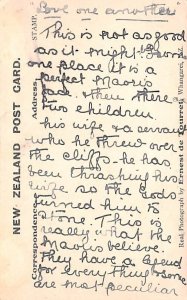 "Love one another"
This is not as good
as it might. From
one place it is a
perfect Maoris
face. Then there
two children
his wife & a servant
who he threw over
the cliffs - he has
been thrashing his
wife so the Gods
turned him to
stone. This is
really what the
Maoris believe.
They have a legend
for everything some
are most peculiar
NEW ZEALAND POST CARD.
Correspondence
Address
STAMP.
Real Photograph by Ernest de Tourret, Whangarei, N.Z.